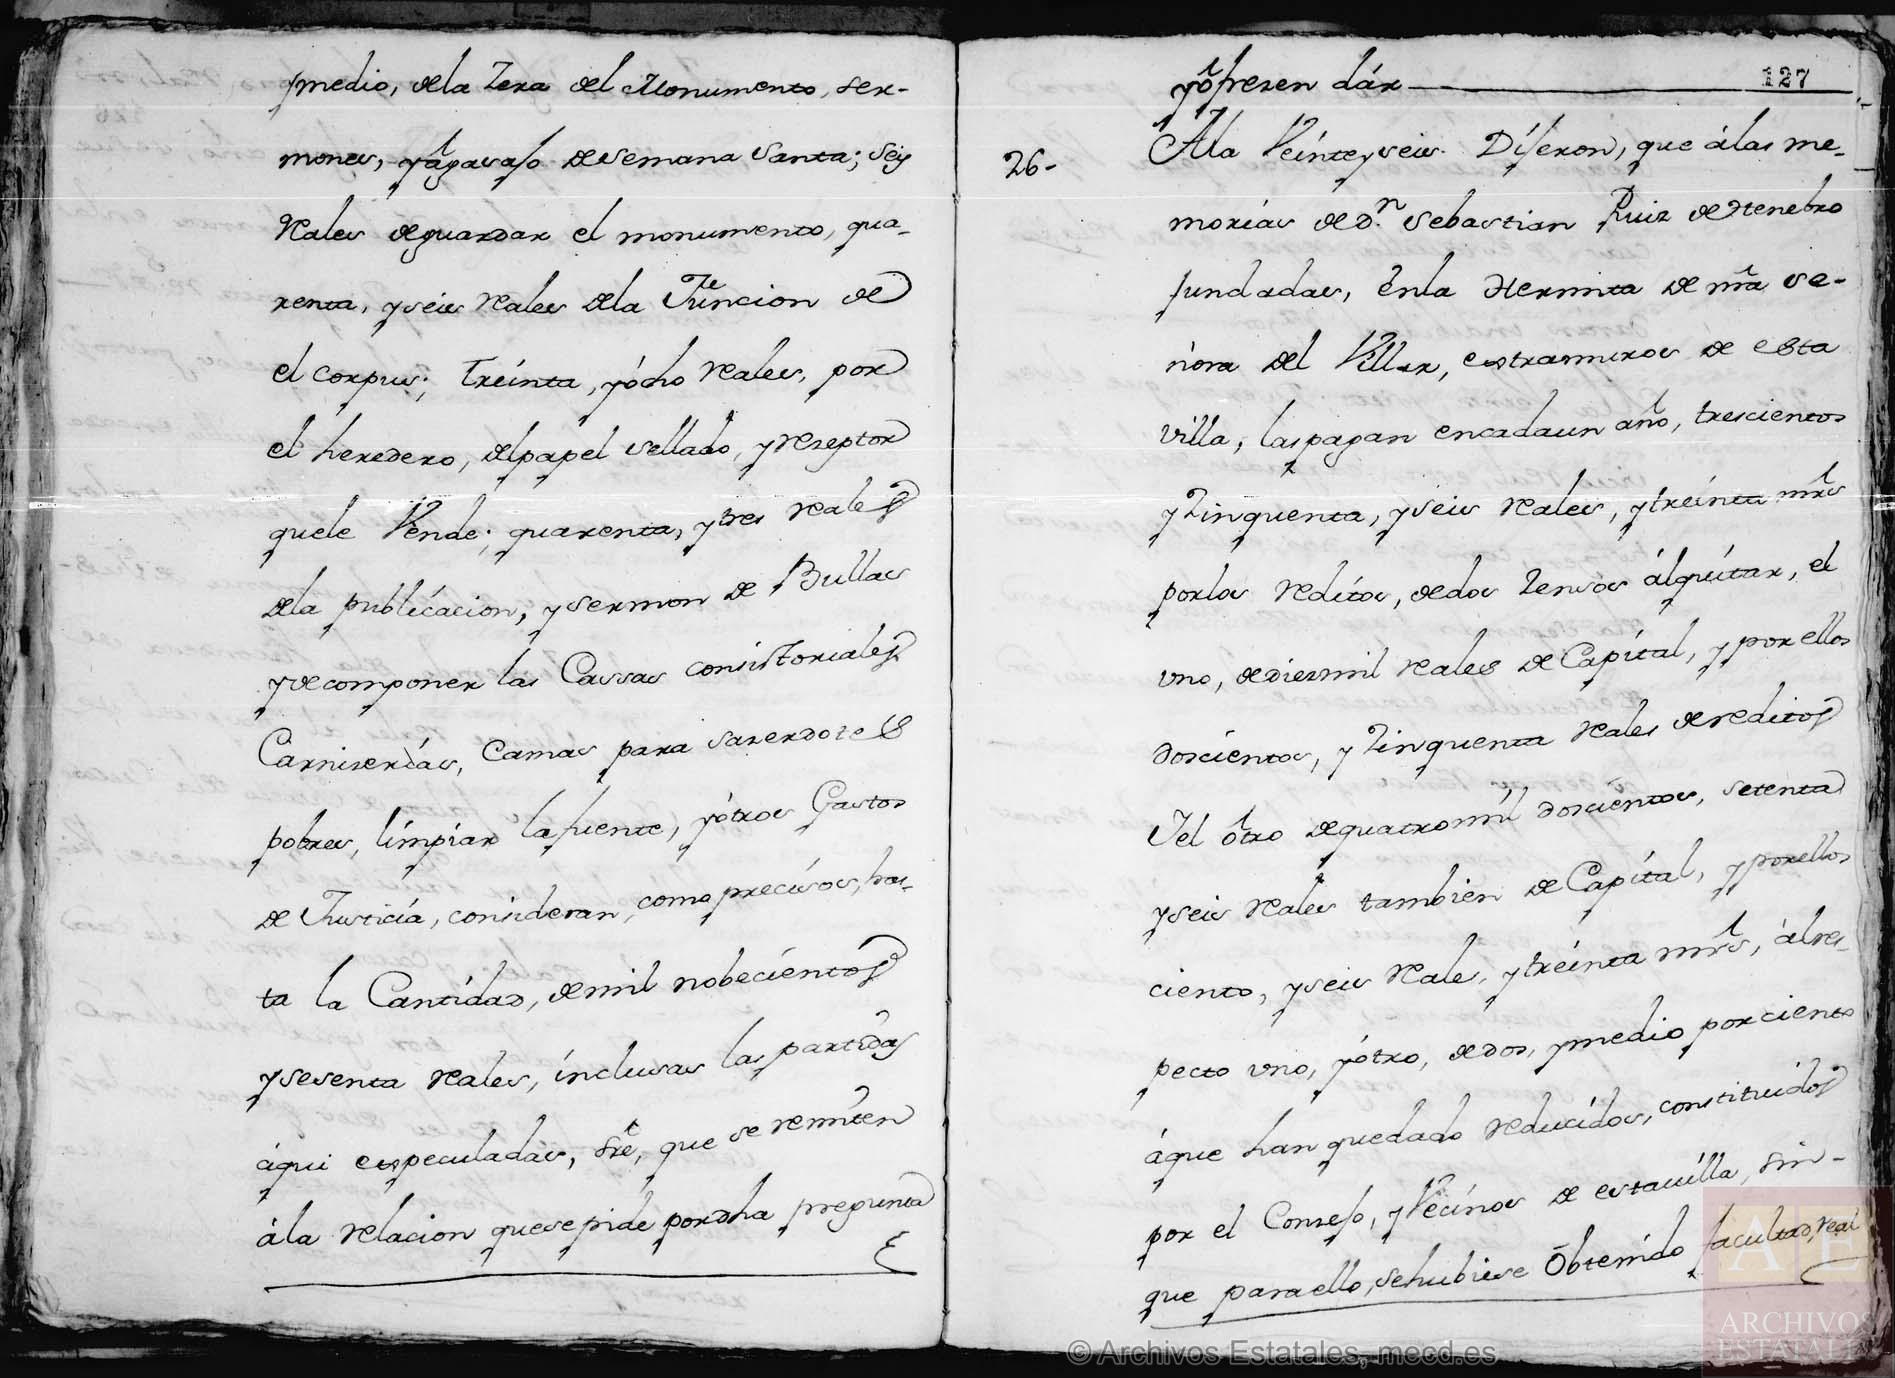 ymedio, dela Zera del Monumento, ser-
mones, yágasajo de semana Santa; Seis
Reales deguardar el monumento, qua-
renta, yseis Reales dela Función de
el corpus; treínta, yócho Reales, por
el heredero, delpapel sellado, yreseptor
quele Vende; quarenta, ytres reales
dela publicacion, ysermon de Bullas
ydecomponer las Cassas consistoriales
Carniserías, Camas para sazerdotes
pobres, límpíar lafuente, yótros Gastos
de Justicia, consideran, como precisos, has-
ta la Cantidad, demil nobecientos
ysesenta Reales, inclusas las partidas
áqui especuladas, que se remiten
ála relacion quesepide pordha pregunta
yófresen dár
127
26-
Ala Veínteyseis. Díjeron, que álas me-
morias de Dn. Sebastian Ruiz de Henebro
fundadas, énla Hermita de nra Se-
ñora del Villar, estramuros de esta
villa, laspagan encadaun año, trescientos
yZinquenta, yseis Reales, ytreínta mrs
porlos Reditos, dedos Zensos álquitar, el
uno, dediezmil Reales de Capítal, yporellos
doscientos, yZinquenta Reales dereditos
Yel ótro dequatromíl doscientos, setenta
yseis Reales tambien de Capítal, yporellos
ciento, yseis Reale, ytreínta mrs, álres-
pecto uno, yótro, dedos, ymedio porciento
áque han quedado reducidos, constituidos
por el Consejo, yVecinos de estavilla, sin-
que paraello, sehubiese óbtenido facultad, real
© Archivos Estatales, mecd.es
AE
ARCHIVOS
ESTATALES